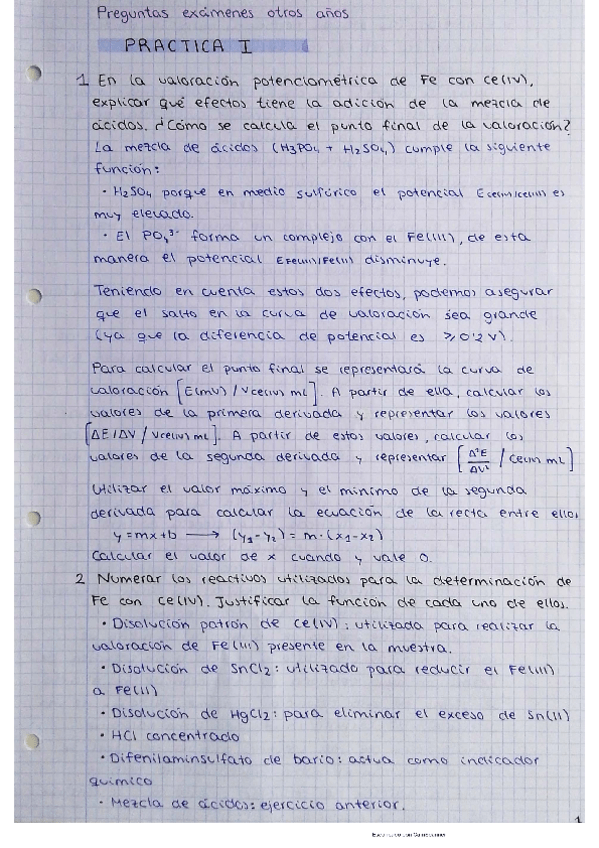 Preguntas exámenes otros años
PRACTICA I
1 En la valoración potenciométrica de Fe con Ce(IV),
explicar qué efectos tiene la adición de la mezcla de
ácidos. ¿Cómo se calcula el punto final de la valoración?
La mezcla de ácidos (H3PO4 + H2SO4) cumple la siguiente
función:
· H2SO4 porque en medio sulfúrico el potencial ECe(IV)/Ce(III) es
muy elevado.
· El PO4³⁻ forma un complejo con el Fe(III), de esta
manera el potencial EFe(III)/Fe(II) disminuye.
Teniendo en cuenta estos dos efectos, podemos asegurar
que el salto en la curva de valoración sea grande
(ya que la diferencia de potencial es ≥ 0'2 V).
Para calcular el punto final se representará la curva de
valoración [E(mV) / VCe(IV) mL]. A partir de ella, calcular los
valores de la primera derivada y representar los valores
[ΔE/ΔV / VCe(IV) mL]. A partir de estos valores, calcular los
valores de la segunda derivada y representar [Δ²E/ΔV² / Ce(IV) mL]
Utilizar el valor máximo y el mínimo de la segunda
derivada para calcular la ecuación de la recta entre ellos
y = mx + b ⟶ (y1 - y2) = m · (x1 - x2)
Calcular el valor de x cuando y vale 0.
2 Numerar los reactivos utilizados para la determinación de
Fe con Ce(IV). Justificar la función de cada uno de ellos.
· Disolución patrón de Ce(IV): utilizada para realizar la
valoración de Fe(III) presente en la muestra.
· Disolución de SnCl2: utilizado para reducir el Fe(III)
a Fe(II)
· Disolución de HgCl2: para eliminar el exceso de Sn(II)
· HCl concentrado
· Difenilaminsulfato de bario: actua como indicador
químico
· Mezcla de ácidos: ejercicio anterior.
1
Escaneado con CamScanner